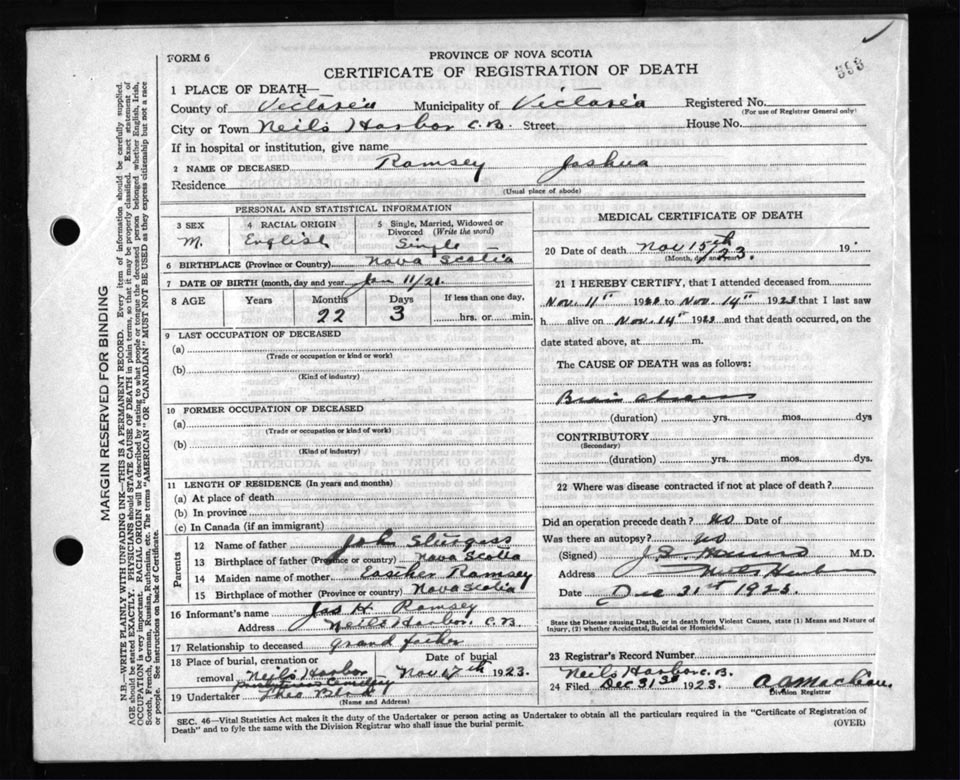 FORM 6
PROVINCE OF NOVA SCOTIA
CERTIFICATE OF REGISTRATION OF DEATH
393
1 PLACE OF DEATH—
County of Victoria Municipality of Victoria Registered No.
(For use of Registrar General only)
City or Town Neils Harbor C.B. Street House No.
If in hospital or institution, give name
2 NAME OF DECEASED Ramsey Joshua
Residence
(Usual place of abode)
PERSONAL AND STATISTICAL INFORMATION
3 SEX
M.
4 RACIAL ORIGIN
English
5 Single, Married, Widowed or Divorced (Write the word)
Single
6 BIRTHPLACE (Province or Country) Nova Scotia
7 DATE OF BIRTH (month, day and year) Jan 11/21
8 AGE Years Months Days If less than one day,
22 3 hrs. or min.
9 LAST OCCUPATION OF DECEASED
(a)
(Trade or occupation or kind or work)
(b)
(Kind of industry)
10 FORMER OCCUPATION OF DECEASED
(a)
(Trade or occupation or kind of work)
(b)
(Kind of industry)
11 LENGTH OF RESIDENCE (In years and months)
(a) At place of death
(b) In province
(c) In Canada (if an immigrant)
Parents
12 Name of father John Sturgess
13 Birthplace of father (Province or country) Nova Scotia
14 Maiden name of mother Ramsey
15 Birthplace of mother (Province or country) Nova Scotia
16 Informant's name Jas H. Ramsey
Address Neils Harbor, C.B.
17 Relationship to deceased Grand father
18 Place of burial, cremation or removal Neils Harbor Cemetery
Date of burial
Nov 17th 1923.
19 Undertaker
(Name and Address)
MEDICAL CERTIFICATE OF DEATH
20 Date of death Nov 15th 23. 19
(Month, day and year)
21 I HEREBY CERTIFY, that I attended deceased from
Nov. 11th 1923 to Nov. 14th 1923 that I last saw
h alive on Nov. 14th 1923 and that death occurred, on the
date stated above, at m.
The CAUSE OF DEATH was as follows:
Brain abscess
(duration) yrs. mos. dys
CONTRIBUTORY
(Secondary)
(duration) yrs. mos. dys.
22 Where was disease contracted if not at place of death?
Did an operation precede death? No Date of
Was there an autopsy? No
(Signed) M.D.
Address Neils Harb
Date Dec 31st 1923.
State the Disease causing Death, or in death from Violent Causes, state (1) Means and Nature of
Injury, (2) whether Accidental, Suicidal or Homicidal.
23 Registrar's Record Number
Neils Harbor C.B.
24 Filed Dec 31st 1923.
Division Registrar
SEC. 46—Vital Statistics Act makes it the duty of the Undertaker or person acting as Undertaker to obtain all the particulars required in the "Certificate of Registration of
Death" and to fyle the same with the Division Registrar who shall issue the burial permit.
(OVER)
MARGIN RESERVED FOR BINDING
N.B.—WRITE PLAINLY WITH UNFADING INK—THIS IS A PERMANENT RECORD. Every item of information should be carefully supplied.
AGE should be stated EXACTLY. PHYSICIANS should STATE CAUSE OF DEATH in plain terms, so that it may be properly classified. Exact statement of
OCCUPATION is very important. RACIAL ORIGIN will be described by stating to what people or tongue the deceased person belonged whether English, Irish,
Scotch, French, German, Russian, Ruthenian, etc. The terms "AMERICAN" OR "CANADIAN" MUST NOT BE USED as they express citizenship but not a race
or people. See instructions on back of Certificate.